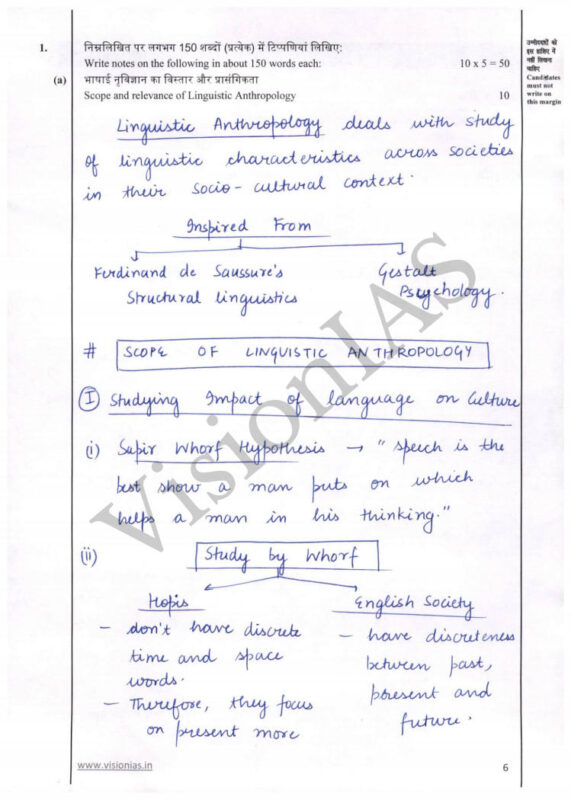 1. निम्नलिखित पर लगभग 150 शब्दों (प्रत्येक) में टिप्पणियां लिखिए:
Write notes on the following in about 150 words each: 10 x 5 = 50
(a) भाषाई नृविज्ञान का विस्तार और प्रासंगिकता
Scope and relevance of Linguistic Anthropology 10
उम्मीदवारों को
इस हाशिए में
नहीं लिखना
चाहिए
Candidates
must not
write on
this margin
Linguistic Anthropology deals with study
of linguistic characteristics across societies
in their socio-cultural context.
Inspired From
Ferdinand de Saussure's
Structural linguistics
Gestalt
Psychology.
# SCOPE OF LINGUISTIC ANTHROPOLOGY
I Studying Impact of language on Culture
(i) Sapir Whorf Hypothesis → "speech is the
best show a man puts on which
helps a man in his thinking."
(ii) Study by Whorf
Hopis
- don't have discrete
time and space
words.
- Therefore, they focus
on present more
English Society
- have discreteness
between past,
present and
future.
VisionIAS
www.visionias.in
6